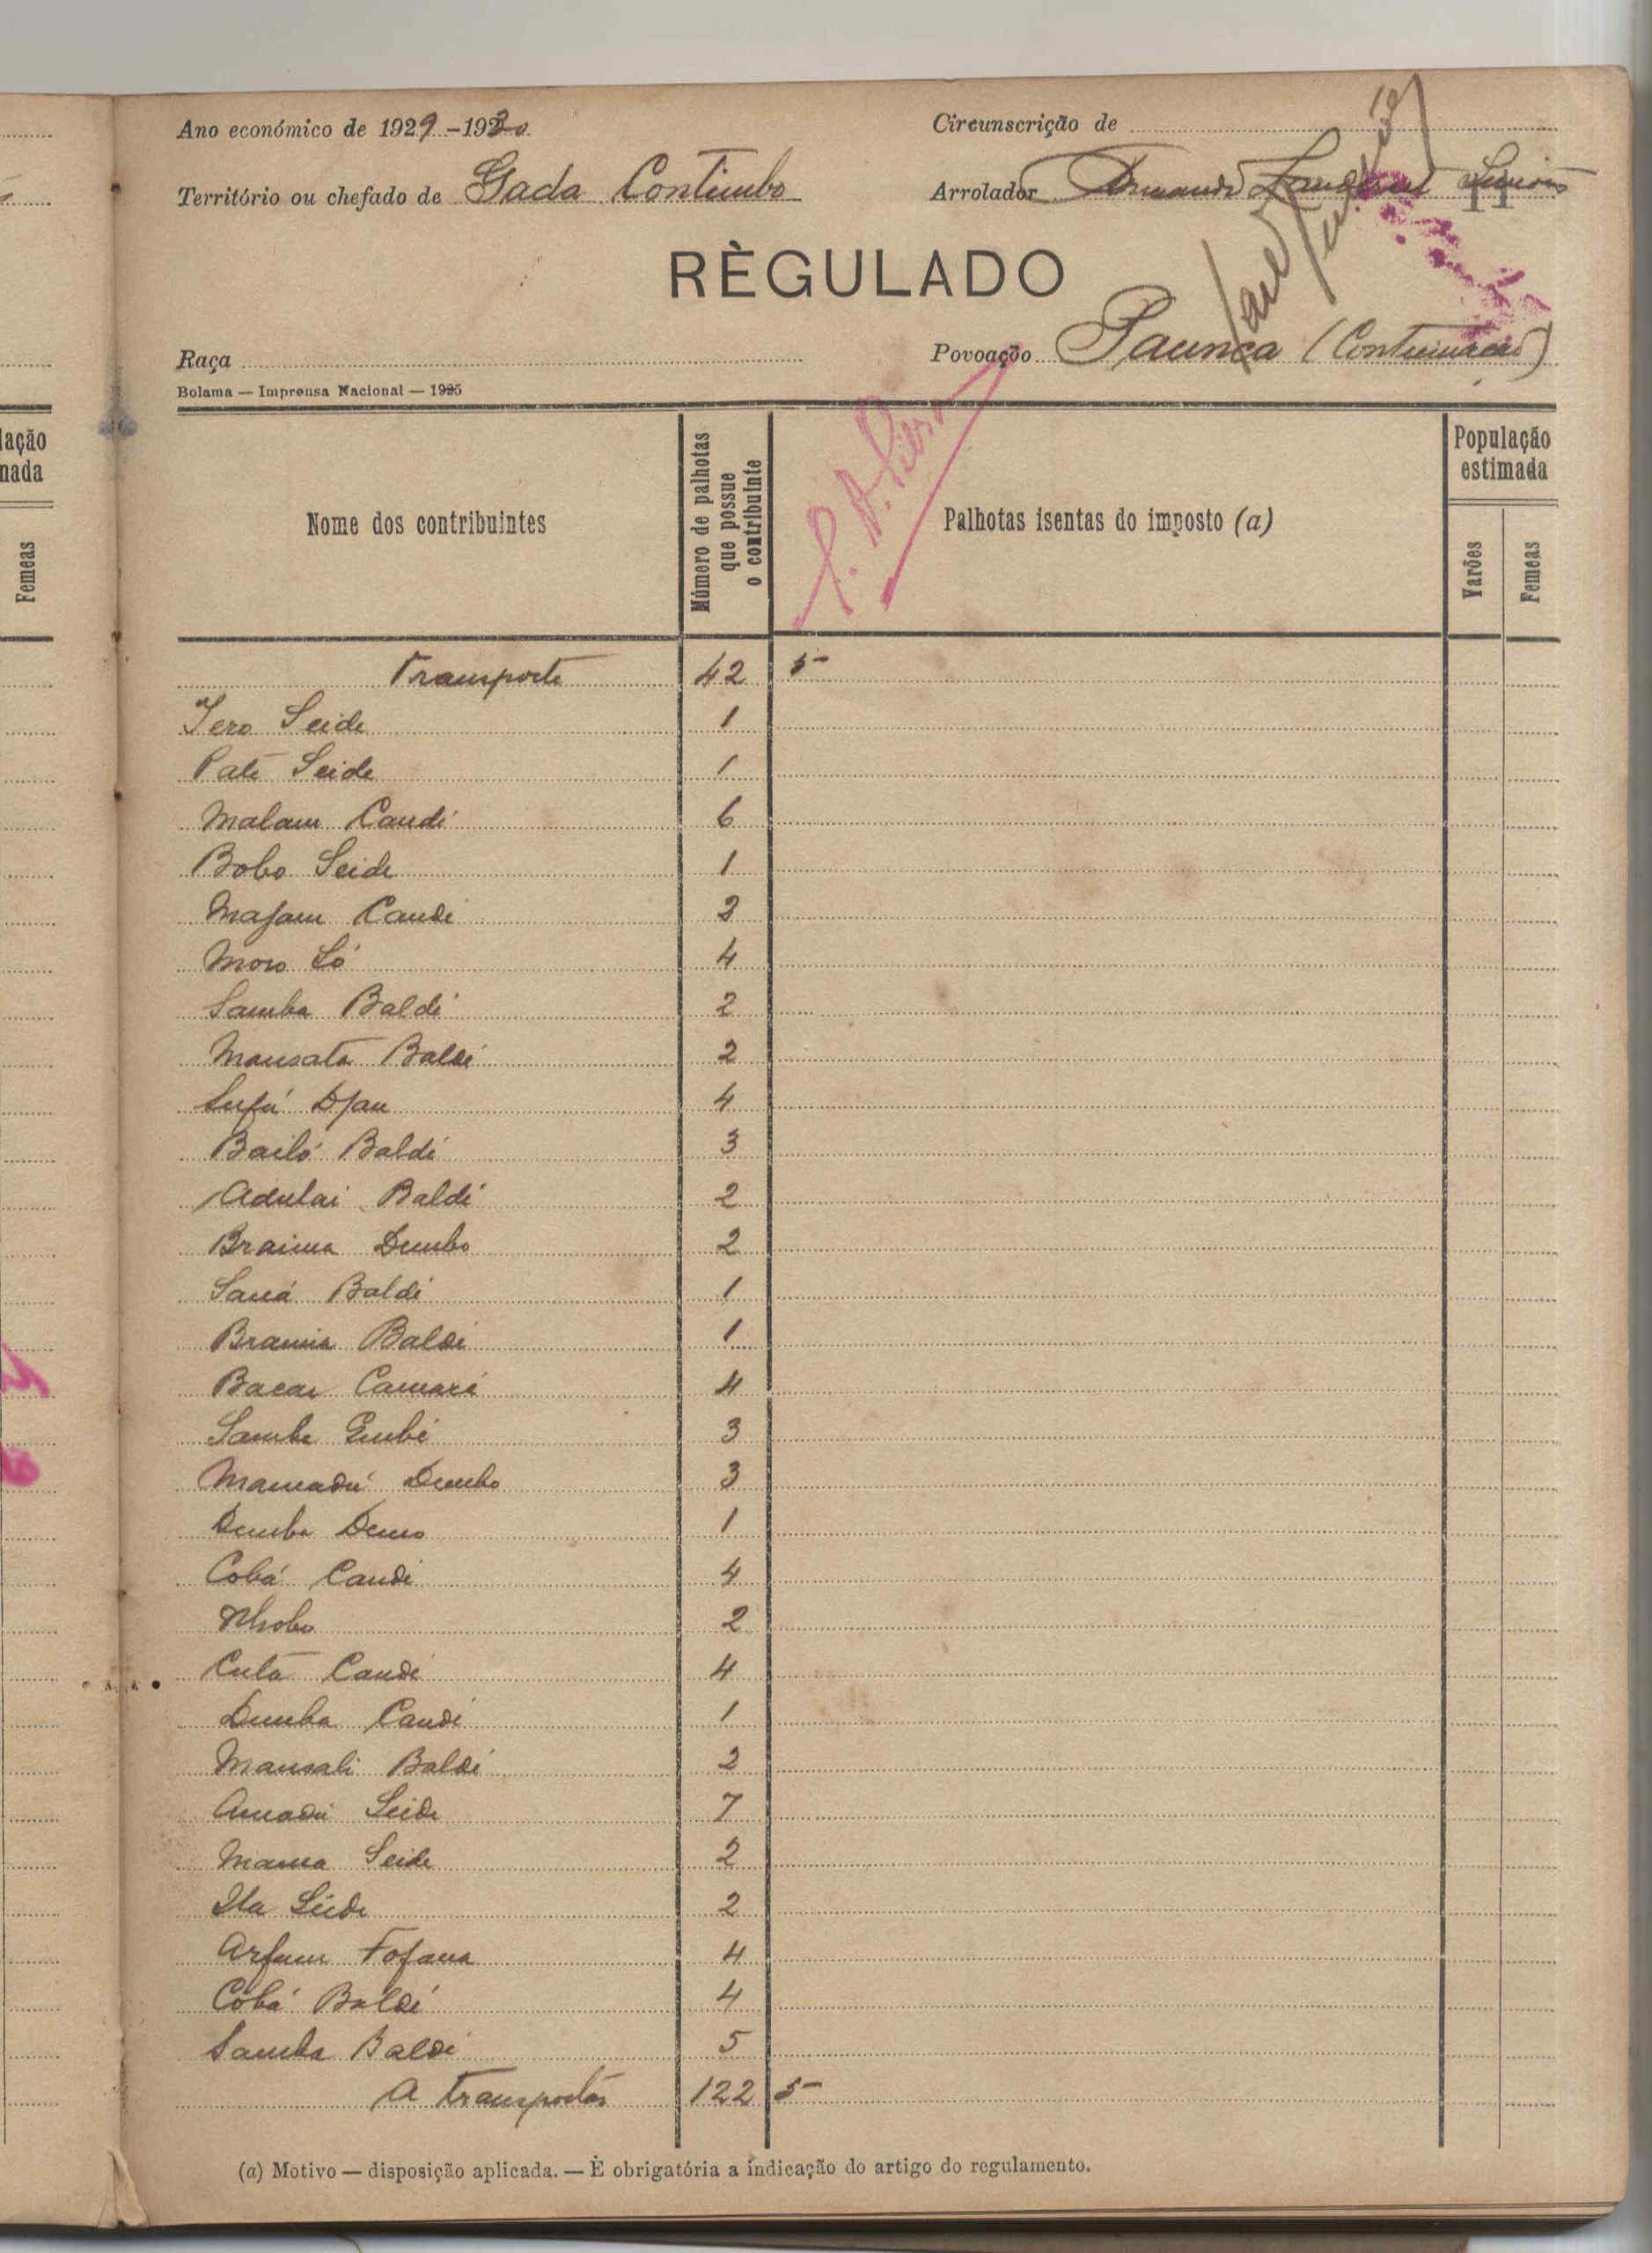 Ano económico de 1929-1930
Circunscrição de
Território ou chefado de Gada Contimbo
Arrolador Armando
RÈGULADO
Raça
Povoação Paunca (Continuação)
Bolama — Imprensa Nacional — 1925
lação
nada
Femeas
Nome dos contribuintes
Número de palhotas
que possue
o contribuinte
Palhotas isentas do imposto (a)
População
estimada
Varões
Femeas
Transporte 42 5-
Iero Seide 1
Paté Seide 1
Malam Candé 6
Bobo Seide 1
Mafam Candé 2
Moro Só 4
Samba Baldé 2
Mansata Baldé 2
Sufá Djau 4
Bailó Baldé 3
Adulai Baldé 2
Braima Dembo 2
Saná Baldé 1
Braima Baldé 1
Bacar Camará 4
Samba Embé 3
Mamadú Dembo 3
Demba Demo 1
Cobá Candé 4
Nhobo 2
Cutá Candé 4
Demba Candé 1
Mansali Baldé 2
Amadú Seide 7
Mama Seide 2
Ila Seide 2
Arfam Fofana 4
Cobá Baldé 4
Samba Baldé 5
A transportar 122 5-
(a) Motivo — disposição aplicada. — È obrigatória a indicação do artigo do regulamento.